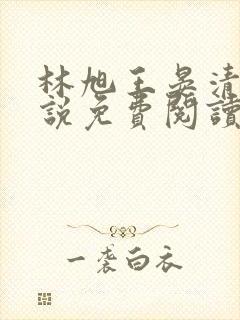 林旭王晏清
說免費閱讀
一袭白衣